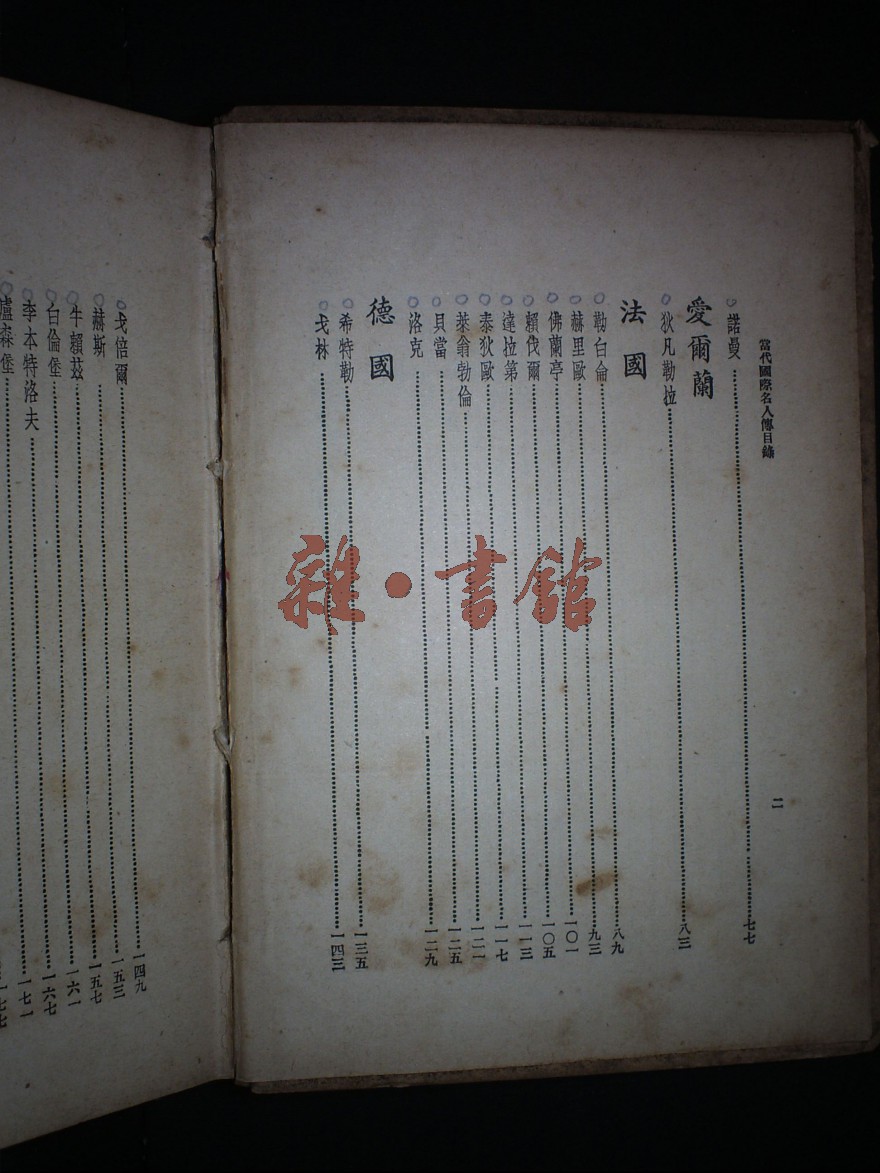 當代國際名人傳目錄 二
諾曼……七七
愛爾蘭
狄凡勒拉……八三
法國
勒白倫……八九
赫里歐……九三
佛蘭亭……一〇一
賴伐爾……一〇五
達拉第……一一三
泰狄歐……一一七
萊翁勃倫……一二一
貝當……一二五
洛克……一二九
德國
希特勒……一三五
戈林……一四三
戈倍爾……一四九
赫斯……一五三
牛賴茲……一五七
白倫堡……一六一
李本特洛夫……一六七
森堡……一七一
一七七
雜·書館